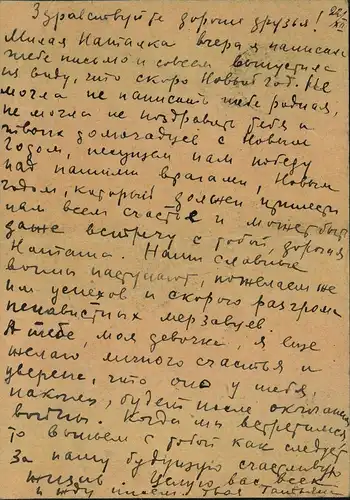 Здравствуйте дорогие друзья! 22/XII
Милая Наталка вчера я написала
тебе письмо и совсем выпустила
из виду, что скоро Новый год. Не
могла не написать тебе родная,
не могла не поздравить тебя и
твоих домочадцев с Новым
Годом, несущем нам победу
над нашими врагами, Новым
годом, который должен принести
нам всем счастье и может быть
даже встречу с тобой, дорогая
Наташа. Наши славные
воины наступают, пожелаем же
им успехов и скорого разгрома
ненавистных мерзавцев.
А тебе, моя девочка, я еще
желаю личного счастья и
уверена, что оно у тебя,
наконец, будет после окончания
войны. Когда мы встретимся
то выпьем с тобой как следует
За нашу будущую счастливую
жизнь. Целую вас всех
и жду писем. Твоя